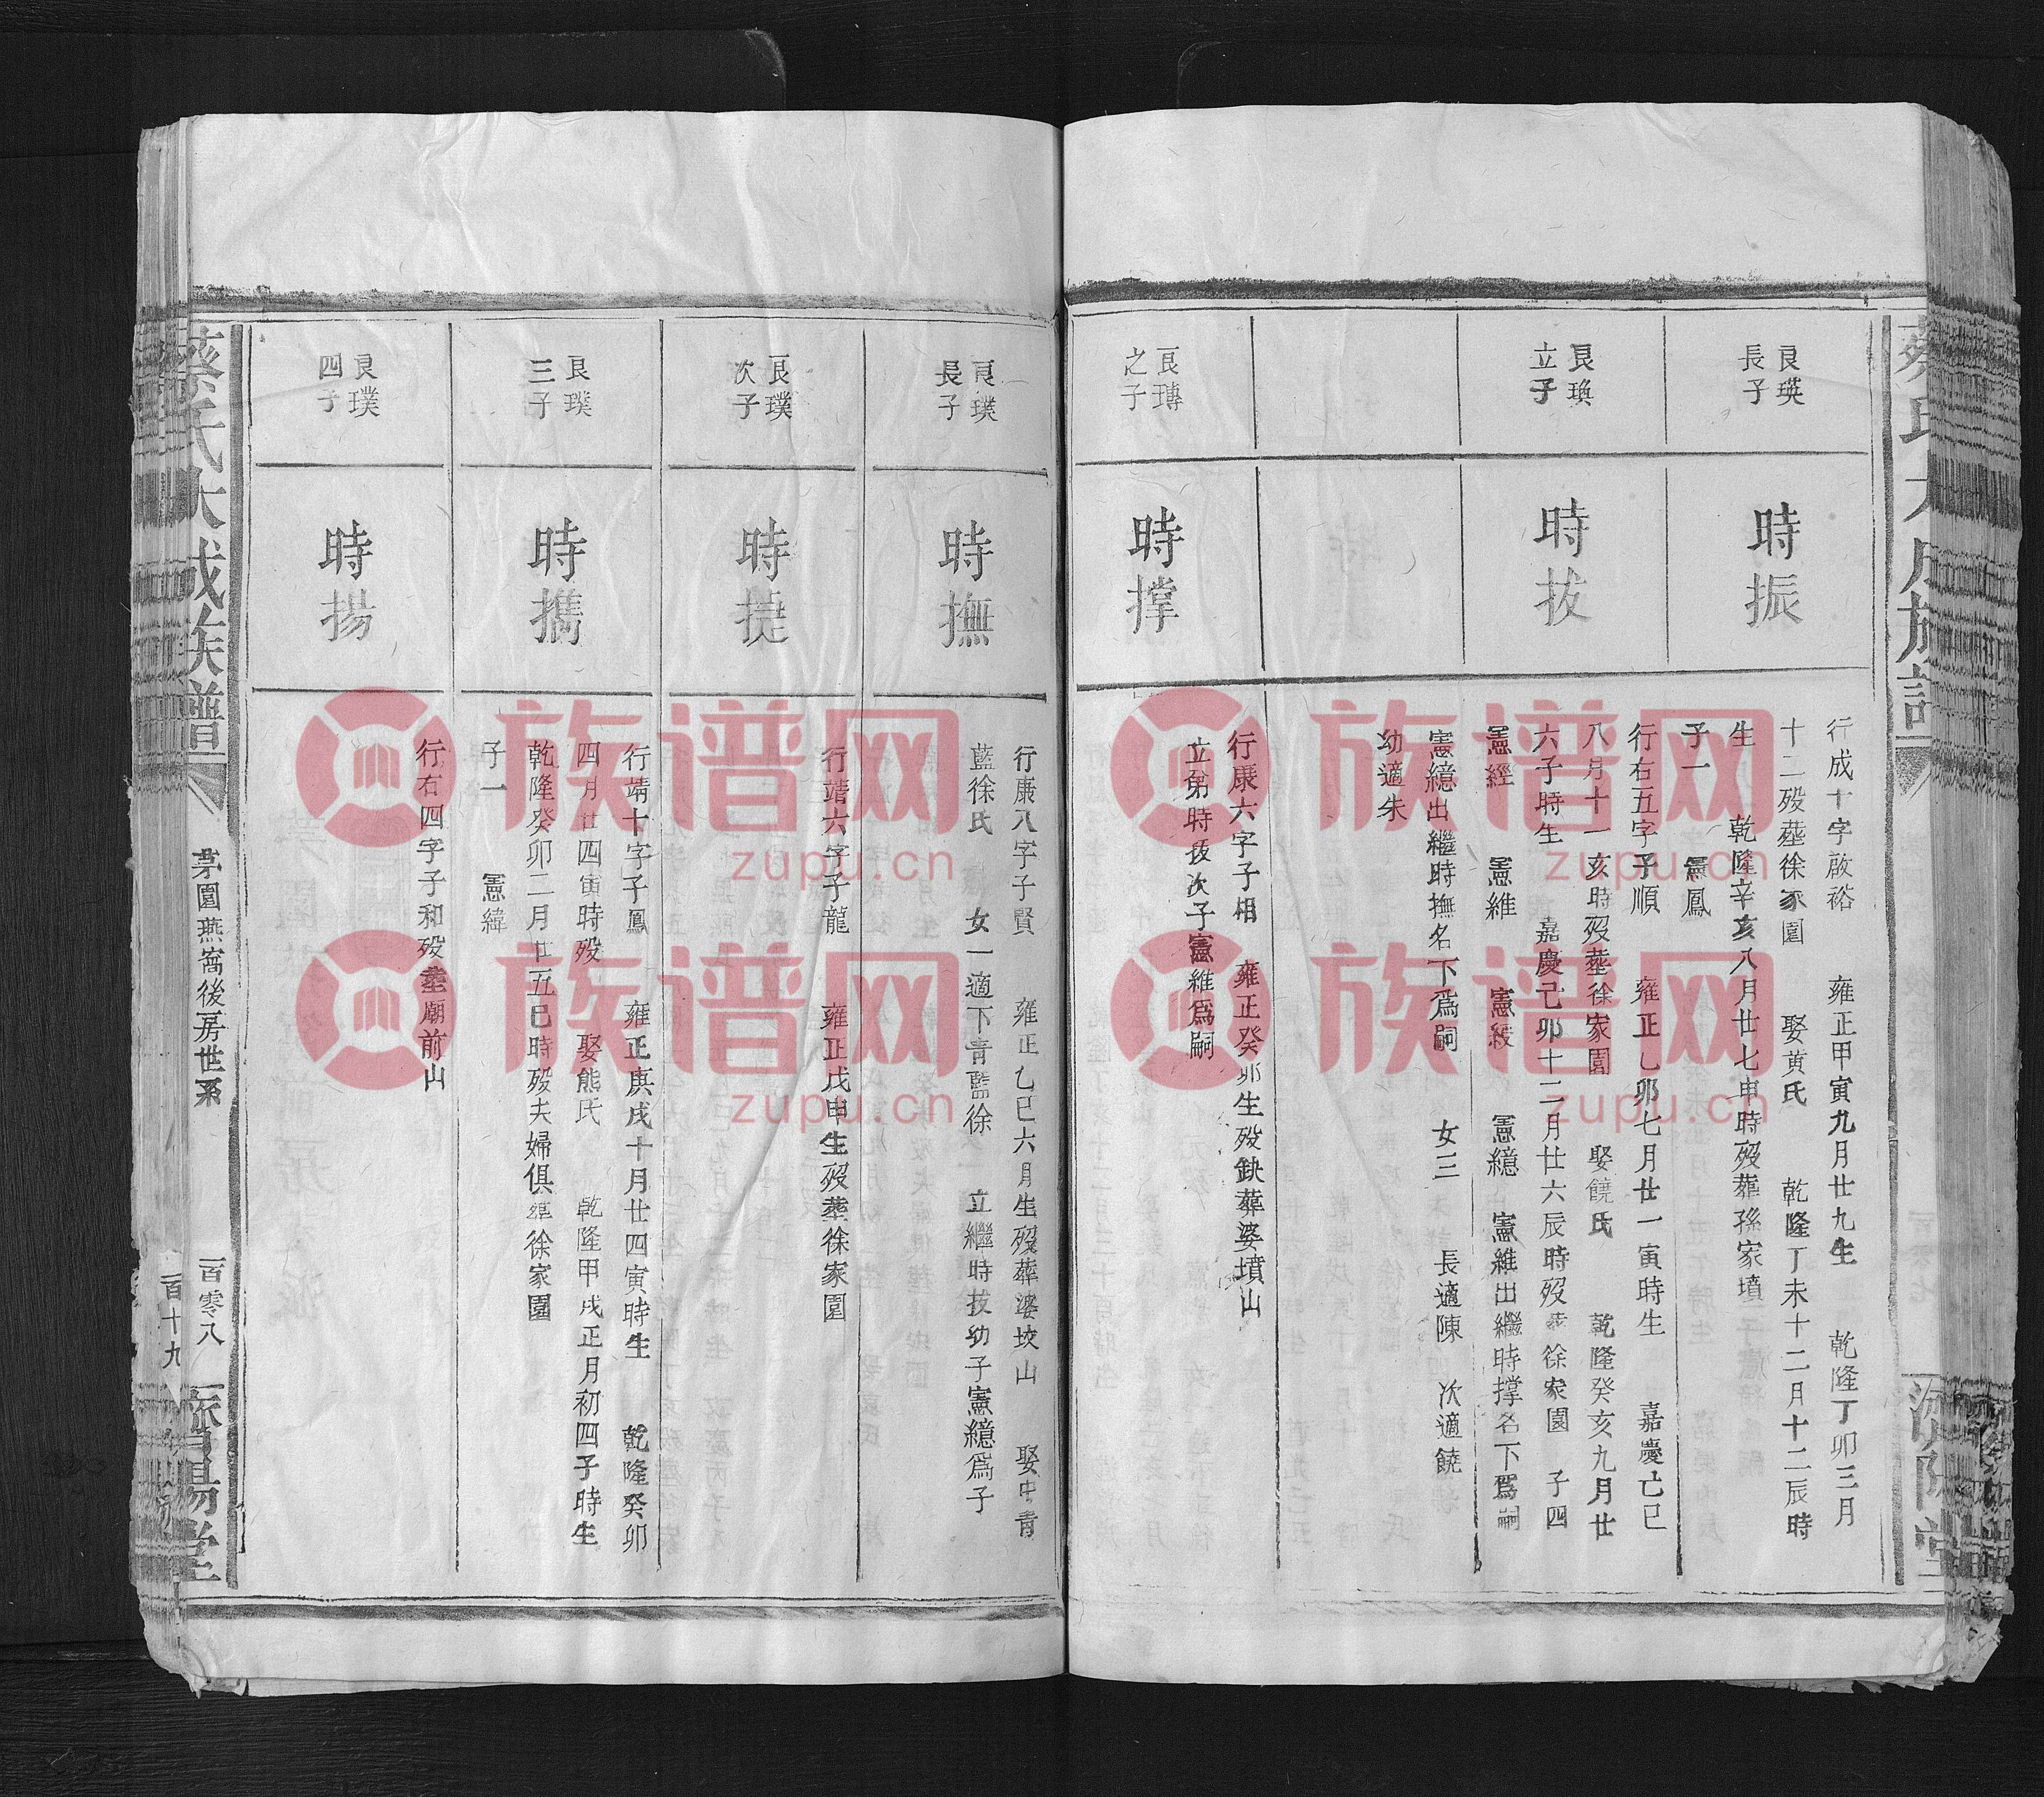 良瑛
長子
時振
行成十字啟裕 雍正甲寅九月廿九生 乾隆丁卯三月
十二殁塟徐家園 娶黃氏 乾隆丁未十二月十二辰時
生 乾隆辛亥八月廿七申時殁葬孫家墳
子一 憲鳳
良瑍
立子
時拔
行右五字子順 雍正乙卯七月廿一寅時生 嘉慶己巳
八月十一亥時殁塟徐家園 娶饒氏 乾隆癸亥九月廿
六子時生 嘉慶己卯十二月廿六辰時殁塟徐家園 子四
憲經 憲維 憲綬 憲繶 憲維出繼時撑名下爲嗣
憲繶出繼時撫名下爲嗣 女三 長適陳 次適饒
幼適朱
良瑼
之子
時撑
行康六字子相 雍正癸卯生殁缺葬婆墳山
立弟時拔次子憲維爲嗣
良璞
長子
時撫
行康八字子賢 雍正乙巳六月生殁葬婆坟山 娶中青
藍徐氏 女一適下青藍徐 立繼時技幼子憲繶爲子
良璞
次子
時㨗
行靖六字子龍 雍正戊申生殁葬徐家園
良璞
三子
時擕
行靖十字子鳳 雍正庚戌十月廿四寅時生 乾隆癸卯
四月廿四寅時殁 娶熊氏 乾隆甲戌正月初四子時生
乾隆癸卯二月廿五巳時殁夫婦俱塟徐家園
子一 憲緯
良璞
四子
時揚
行右四字子和殁塟廟前山
蔡氏大成族譜
茅園燕窩後房世系
一百零八
濟陽堂
一百十九
蔡氏大成族譜
濟陽堂
族谱网
zupu.cn
族谱网
zupu.cn
族谱网
zupu.cn
族谱网
zupu.cn